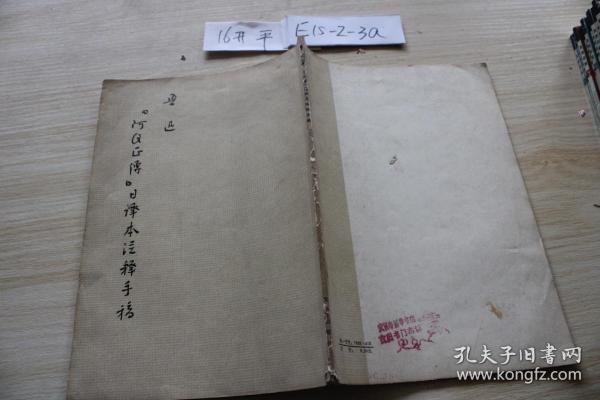 16开 平 E15-2-3a
鲁迅
“阿Q正传”日译本注释手稿
孔夫子旧书网
www.kongfz.com